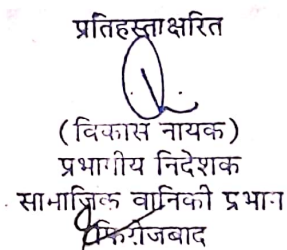 प्रतिहस्ताक्षरित
(विकास नायक)
प्रभागीय निदेशक
सामाजिक वानिकी प्रभाग
फिरोजबाद